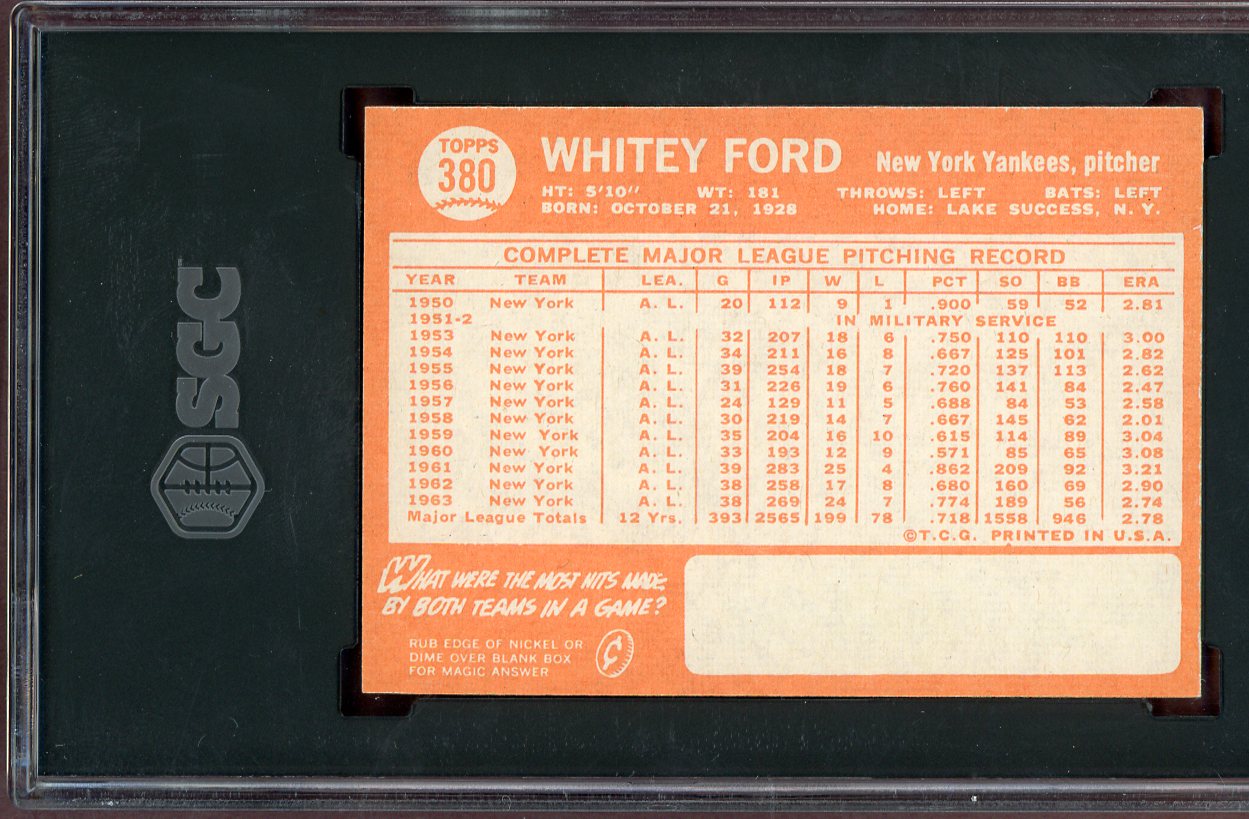 SGC
TOPPS
380
WHITEY FORD New York Yankees, pitcher
HT: 5'10" WT: 181 THROWS: LEFT BATS: LEFT
BORN: OCTOBER 21, 1928 HOME: LAKE SUCCESS, N. Y.
COMPLETE MAJOR LEAGUE PITCHING RECORD
YEAR TEAM LEA. G IP W L PCT SO BB ERA
1950 New York A. L. 20 112 9 1 .900 59 52 2.81
1951-2 IN MILITARY SERVICE
1953 New York A. L. 32 207 18 6 .750 110 110 3.00
1954 New York A. L. 34 211 16 8 .667 125 101 2.82
1955 New York A. L. 39 254 18 7 .720 137 113 2.62
1956 New York A. L. 31 226 19 6 .760 141 84 2.47
1957 New York A. L. 24 129 11 5 .688 84 53 2.58
1958 New York A. L. 30 219 14 7 .667 145 62 2.01
1959 New York A. L. 35 204 16 10 .615 114 89 3.04
1960 New York A. L. 33 193 12 9 .571 85 65 3.08
1961 New York A. L. 39 283 25 4 .862 209 92 3.21
1962 New York A. L. 38 258 17 8 .680 160 69 2.90
1963 New York A. L. 38 269 24 7 .774 189 56 2.74
Major League Totals 12 Yrs. 393 2565 199 78 .718 1558 946 2.78
©T.C.G. PRINTED IN U.S.A.
WHAT WERE THE MOST HITS MADE
BY BOTH TEAMS IN A GAME?
RUB EDGE OF NICKEL OR
DIME OVER BLANK BOX
FOR MAGIC ANSWER
¢